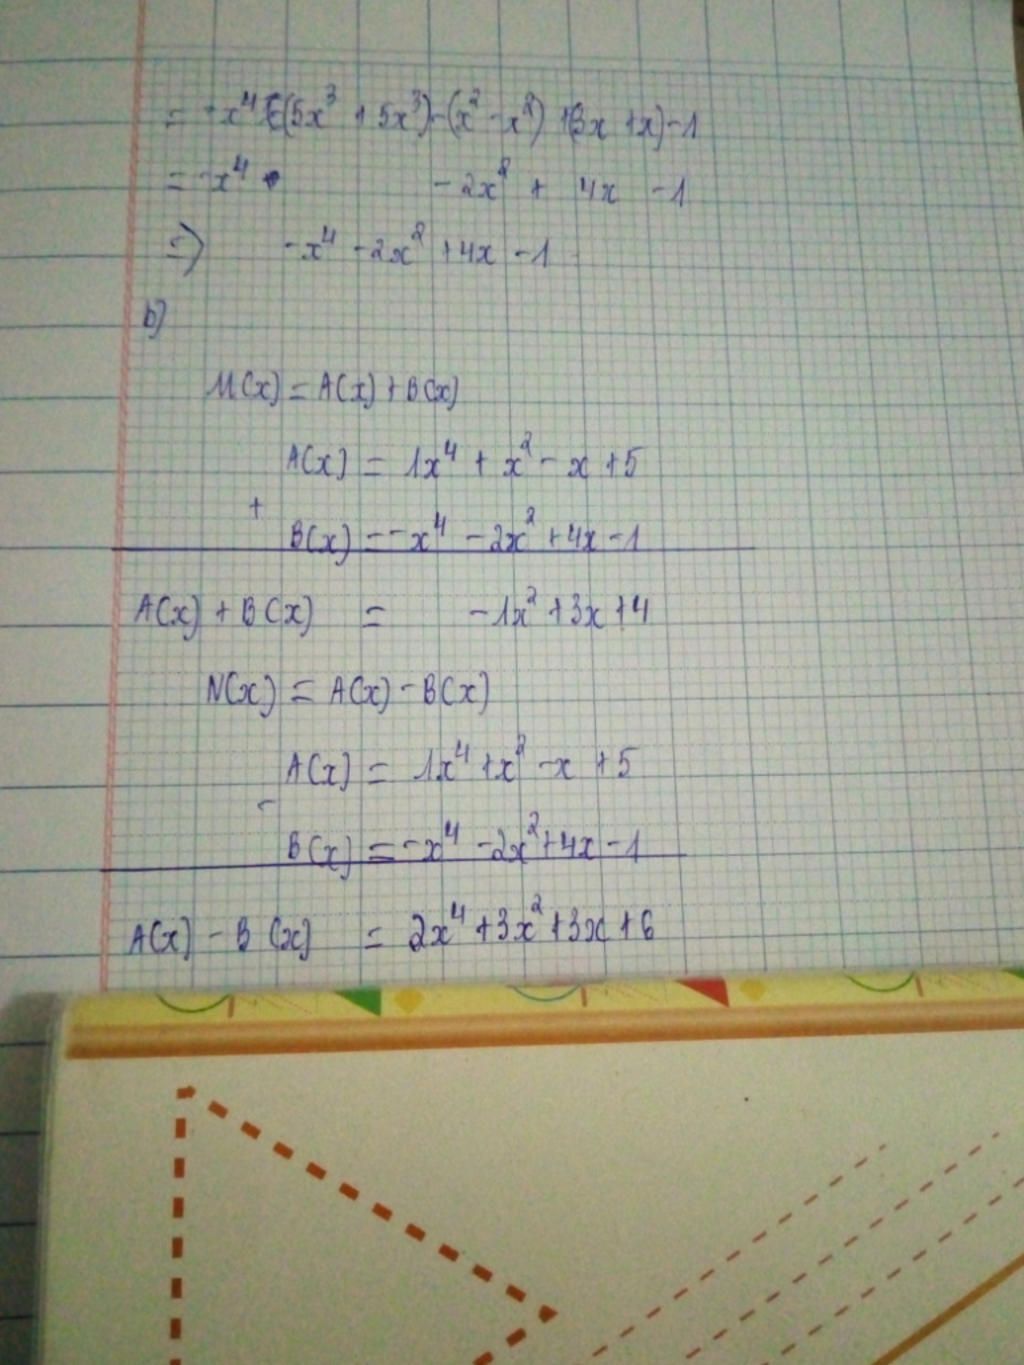 = -x⁴ (5x³ + 5x³) - (x² - x²) + (3x + x) - 1
= -x⁴ - 2x² + 4x - 1
=> -x⁴ - 2x² + 4x - 1
b)
M(x) = A(x) + B(x)
A(x) = 1x⁴ + x² - x + 5
+
B(x) = -x⁴ - 2x² + 4x - 1
A(x) + B(x) = -1x² + 3x + 4
N(x) = A(x) - B(x)
A(x) = 1x⁴ + x² - x + 5
-
B(x) = -x⁴ - 2x² + 4x - 1
A(x) - B(x) = 2x⁴ + 3x² + 3x + 6